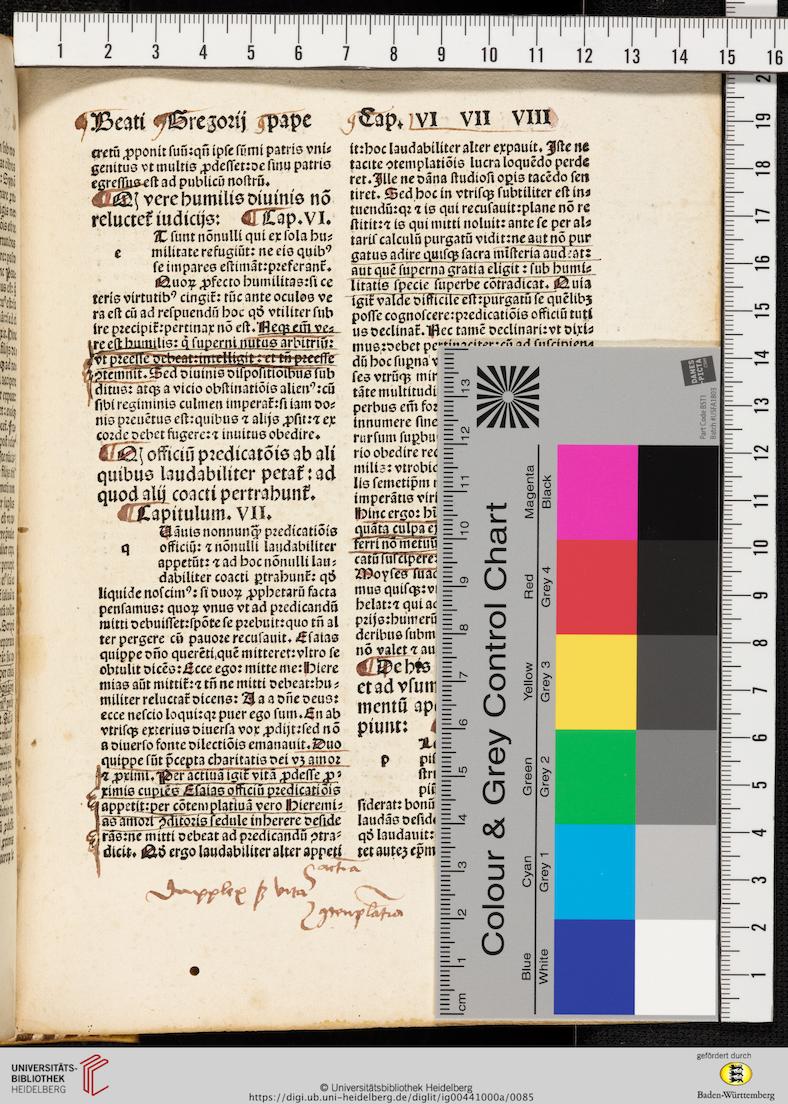 Beati Gregorij pape
cretū ꝓponit suū: qñ ipse sūmi patris vni⸗
genitus vt multis ꝓdesset: de sinu patris
egressus est ad publicū nostrū.
Q vere humilis diuinis nō
reluctet iudicijs: Cap. VI.
T sunt nōnulli qui ex sola hu⸗
e militate refugiūt: ne eis quibꝰ
se impares estimāt: preferant̃.
Quoꝝ ꝓfecto humilitas: si ce
teris virtutibꝰ cingit̃: tūc ante oculos ve
ra est cū ad respuendū hoc qđ vtiliter sub
ire precipit̃: pertinax nō est. Neqꝫ em̄ ve⸗
re est humilis: q̇ superni nutus arbitriū:
vt preesse debeat: intelligit: et tñ preesse
ꝯtemnit. Sed diuinis dispositionibus sub
ditus: atqꝫ a vicio obstinatiōis alienꝰ: cū
sibi regiminis culmen imperat̃: si iam do⸗
nis preuētus est: quibus ⁊ alijs ꝓsit: ⁊ ex
corde debet fugere: ⁊ inuitus obedire.
Q officiū predicatōis ab ali
quibus laudabiliter petat̃: ad
quod alij coacti pertrahunt̃.
Capitulum. VII.
Uāuis nonnunqꝫ predicatiōis
q officiū: ⁊ nōnulli laudabiliter
appetūt: ⁊ ad hoc nōnulli lau⸗
dabiliter coacti ꝑtrahunt̃: qđ
liquide noscimꝰ: si duoꝝ ꝓphetarū facta
pensamus: quoꝝ vnus vt ad predicandū
mitti debuisset: spōte se prebuit: quo tñ al
ter pergere cū pauore recusauit. Esaias
quippe dño querēti, quē mitteret: vltro se
obtulit dicēs: Ecce ego: mitte me: Hiere
mias aūt mittit̃: ⁊ tñ ne mitti debeat: hu⸗
militer reluctat̃ dicens: A a a dñe deus:
ecce nescio loqui: qꝛ puer ego sum. En ab
vtrisqꝫ exterius diuersa vox ꝓdijt: sed nō
a diuerso fonte dilectiōis emanauit. Duo
quippe sūt p̄cepta charitatis dei vꝫ amor
⁊ ꝓximi. Per actiuā igit̃ vitā ꝓdesse ꝓ⸗
ximis cupiēs Esaias officiū predicatiōis
appetit: per cōtemplatiuā vero Hieremi⸗
as amori ꝯditoris sedule inherere deside
rās: ne mitti debeat ad predicandū ꝯtra⸗
dicit. Qđ ergo laudabiliter alter appeti
Cap. VI VII VIII
it: hoc laudabiliter alter expauit. Iste ne
tacite ꝯtemplatiōis lucra loquēdo perde
ret. Ille ne dāna studiosi opis tacēdo sen
tiret. Sed hoc in vtrisqꝫ subtiliter est in⸗
tuendū: qꝛ ⁊ is qui recusauit: plane nō re
stitit: ⁊ is qui mitti noluit: ante se per al⸗
taris calculū purgatū vidit: ne aut nō pur
gatus adire quisqꝫ sacra misteria audeat:
aut quē superna gratia eligit: sub humi⸗
litatis specie superbe cōtradicat. Quia
igit̃ valde difficile est: purgatū se quēlibꝫ
posse cognoscere: predicatiōis officiū tuti
us declinat̃. Nec tamē declinari: vt dixi⸗
mus: debet pertinaciter: cū ad suscipien
dū hoc supna v
ses vtrūqꝫ mir
tāte multitudi
perbus em̄ for
innumere sine
rursum supbu
rio obedire rec
milis: vtrobic
lis semetip̄m r
imperātis viri
Hinc ergo: hi
quāta culpa e
ferri nō metuū
catū suscipere:
Moyses suac
mus quisqꝫ: vi
helat: ⁊ qui ac
prijs: humerū
deribus subm
nō valet ⁊ au
De his
et ad vsum
mentū ap
piunt:
p pis
siderat: bonū
laudās deside
qđ laudauit:
tet autez ep̄m
actia
Duupplex ꝫ vita
ꝯtemplatia
Colour & Grey Control Chart
Blue Cyan Green Yellow Red Magenta
White Grey 1 Grey 2 Grey 3 Grey 4 Black
DANES
-PICTA
.COM
Part Code BST1
Batch #USFA1803
cm 1 2 3 4 5 6 7 8 9 10 11 12 13
1 2 3 4 5 6 7 8 9 10 11 12 13 14 15 16
1 2 3 4 5 6 7 8 9 10 11 12 13 14 15 16 17 18 19
UNIVERSITÄTS-
BIBLIOTHEK
HEIDELBERG
© Universitätsbibliothek Heidelberg
https://digi.ub.uni-heidelberg.de/diglit/ig00441000a/0085
gefördert durch
Baden-Württemberg